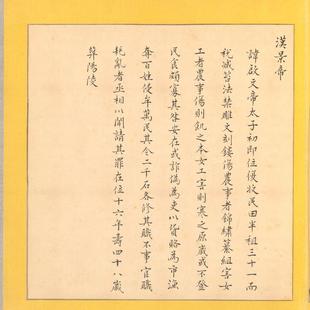 漢景帝
諱啟文帝太子初即位復收民田半租三十一而
稅減笞法禁雕文刻鏤傷農事者錦繡纂組害女
工者農事傷則飢之本女工害則寒之原歲或不登
民食頗寡其咎安在或詐偽為吏以貨賂為市漁
奪百姓侵牟萬民其令二千石各修其職不事官職
耗亂者丞相以聞請其罪在位十六年壽四十八歲
葬陽陵